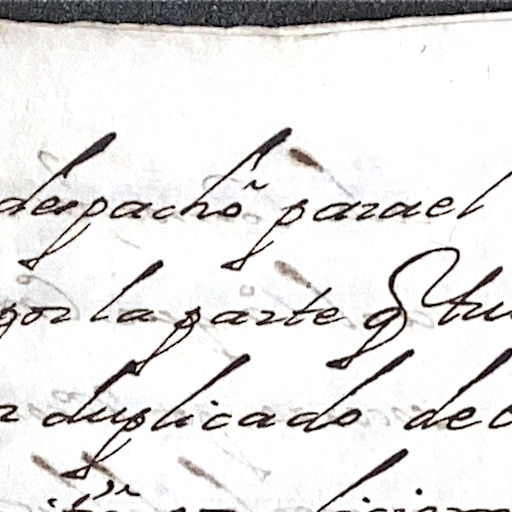 despacho parael
por la parte q tu
duplicado de